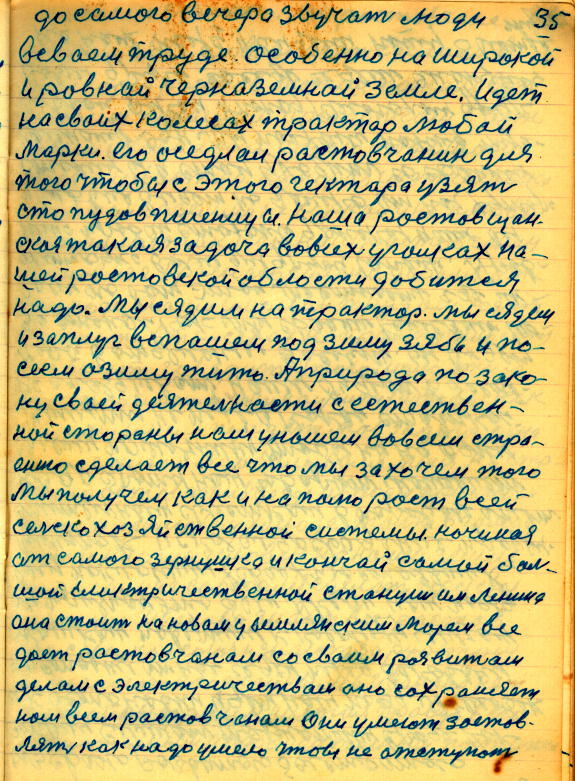 до самого вечера звучат люди 35
всваем труде особенно на широкой
и ровнай черназемнай земле. Идет
на своих колесах трактар любой
марки. его оседлал растовчанин для
того чтобы с этого гектара узят
сто пудов пшеницы. Наша ростовщан-
ская такая задоча вовсех уголках на-
шей ростовской облости добится
надо. Мы сядим на трактор. мы сядем
и заплуг вспашем под зиму зябь и по-
сеем озиму жито. А природа по зако-
ну своей деятелности с естествен-
ной стораны нам унашем вовсем стро-
ено сделает все что мы захочем того
мы получем как и на попо рост всей
селско хозяйственной системы. начиная
от самого зернушка и кончай самой бол-
шой электричественной станции им Ленина
она стоит на новам уцимлянским морем все
дает растовчанам со сваим развитам
делам с электричествам оно сохраняет
нам всем растовчанам Они умеют застов-
лять как надо умело чтобы не отступат